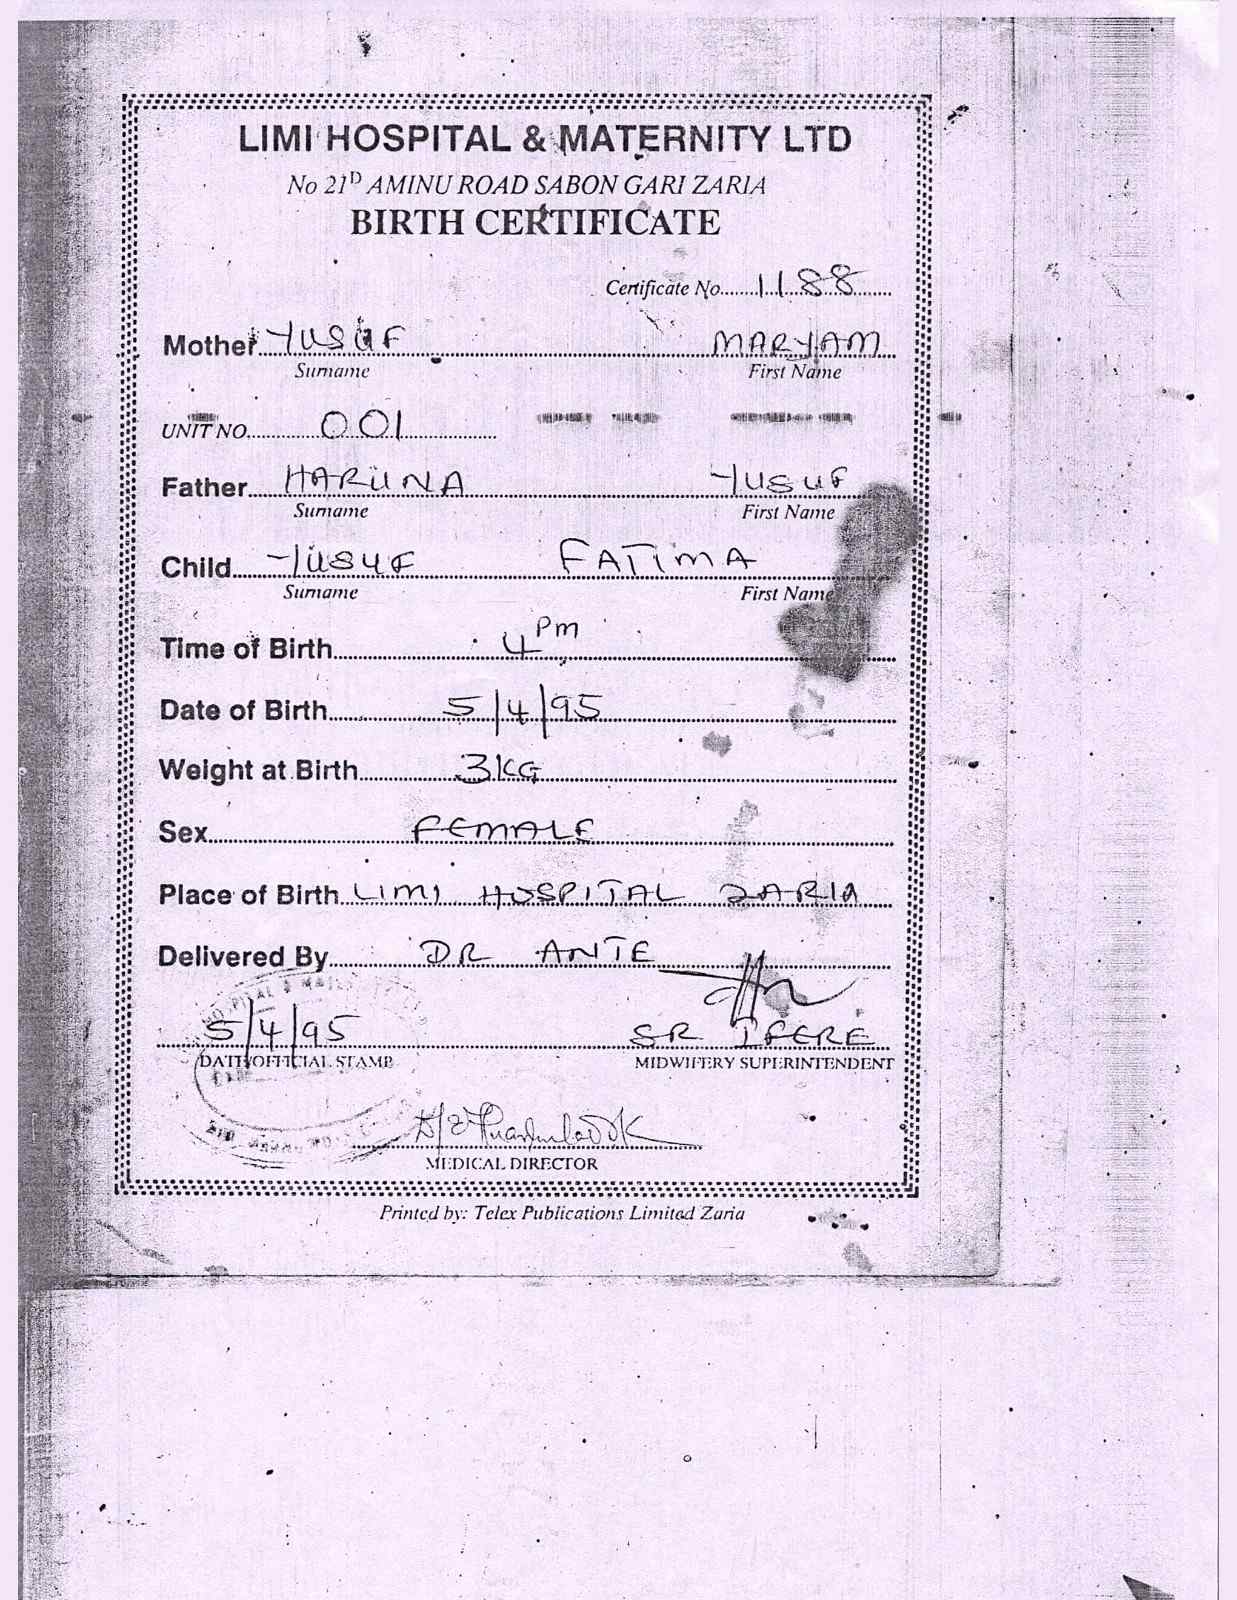 LIMI HOSPITAL & MATERNITY LTD
No 21D AMINU ROAD SABON GARI ZARIA
BIRTH CERTIFICATE
Certificate No 1188
Mother YUSUF MARYAM
Surname First Name
UNIT NO. 001
Father HARUNA YUSUF
Surname First Name
Child YUSUF FATIMA
Surname First Name
Time of Birth 4PM
Date of Birth 5/4/95
Weight at Birth 3KG
Sex FEMALE
Place of Birth LIMI HOSPITAL ZARIA
Delivered By DR ANTE
5/4/95 SR IFERE
DATE/OFFICIAL STAMP MIDWIFERY SUPERINTENDENT
MEDICAL DIRECTOR
Printed by: Telex Publications Limited Zaria